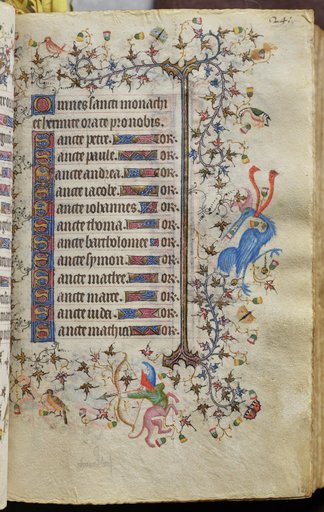 241.
Omnes sancti monachi
et hermite orate pro nobis.
Sancte petre. or.
Sancte paule. or.
Sancte andrea. or.
Sancte iacobe. or.
Sancte iohannes. or.
Sancte thoma. or.
Sancte bartholomee or.
Sancte symon. or.
Sancte mathee. or.
Sancte marce. or.
Sancte iuda. or.
Sancte mathia or.